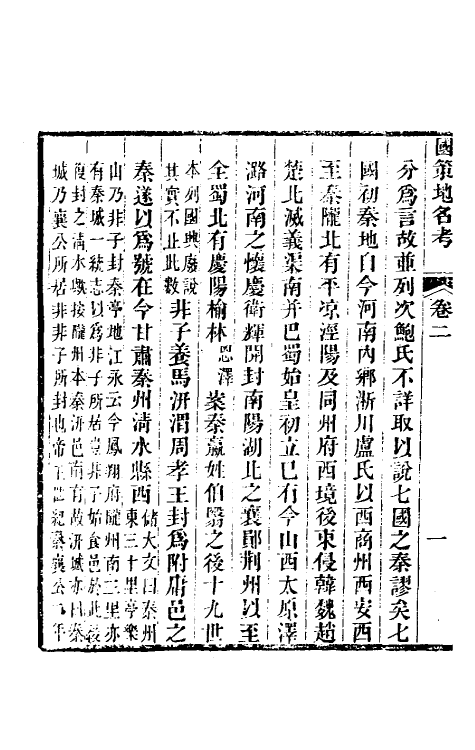 國策地名考
卷二
一
分爲言故並列次鮑氏不詳取以說七國之秦謬矣七
國初秦地自今河南內鄉淅川盧氏以西商州西安西
至秦隴北有平凉涇陽及同州府西境後東侵韓魏趙
楚北滅義渠南并巴蜀始皇初立已有今山西太原澤
潞河南之懷慶衛輝開封南陽湖北之襄鄖荆州以至
全蜀北有慶陽榆林
恩澤
案秦嬴姓伯翳之後十九世
本列國興廢說
其實不止此數
非子養馬汧渭周孝王封爲附庸邑之
秦遂以爲號在今甘肅秦州清水縣西
儲大文曰秦州
東三十里亭樂
山乃非子封秦亭地江永云今鳳翔府隴州南三里亦
有秦城一統志以爲非子所居豈非子始食邑於此
復封之清水與接隴州本秦汧邑南有故汧城亦曰秦
城乃襄公所居非非子所封也帝王世紀襄公二年